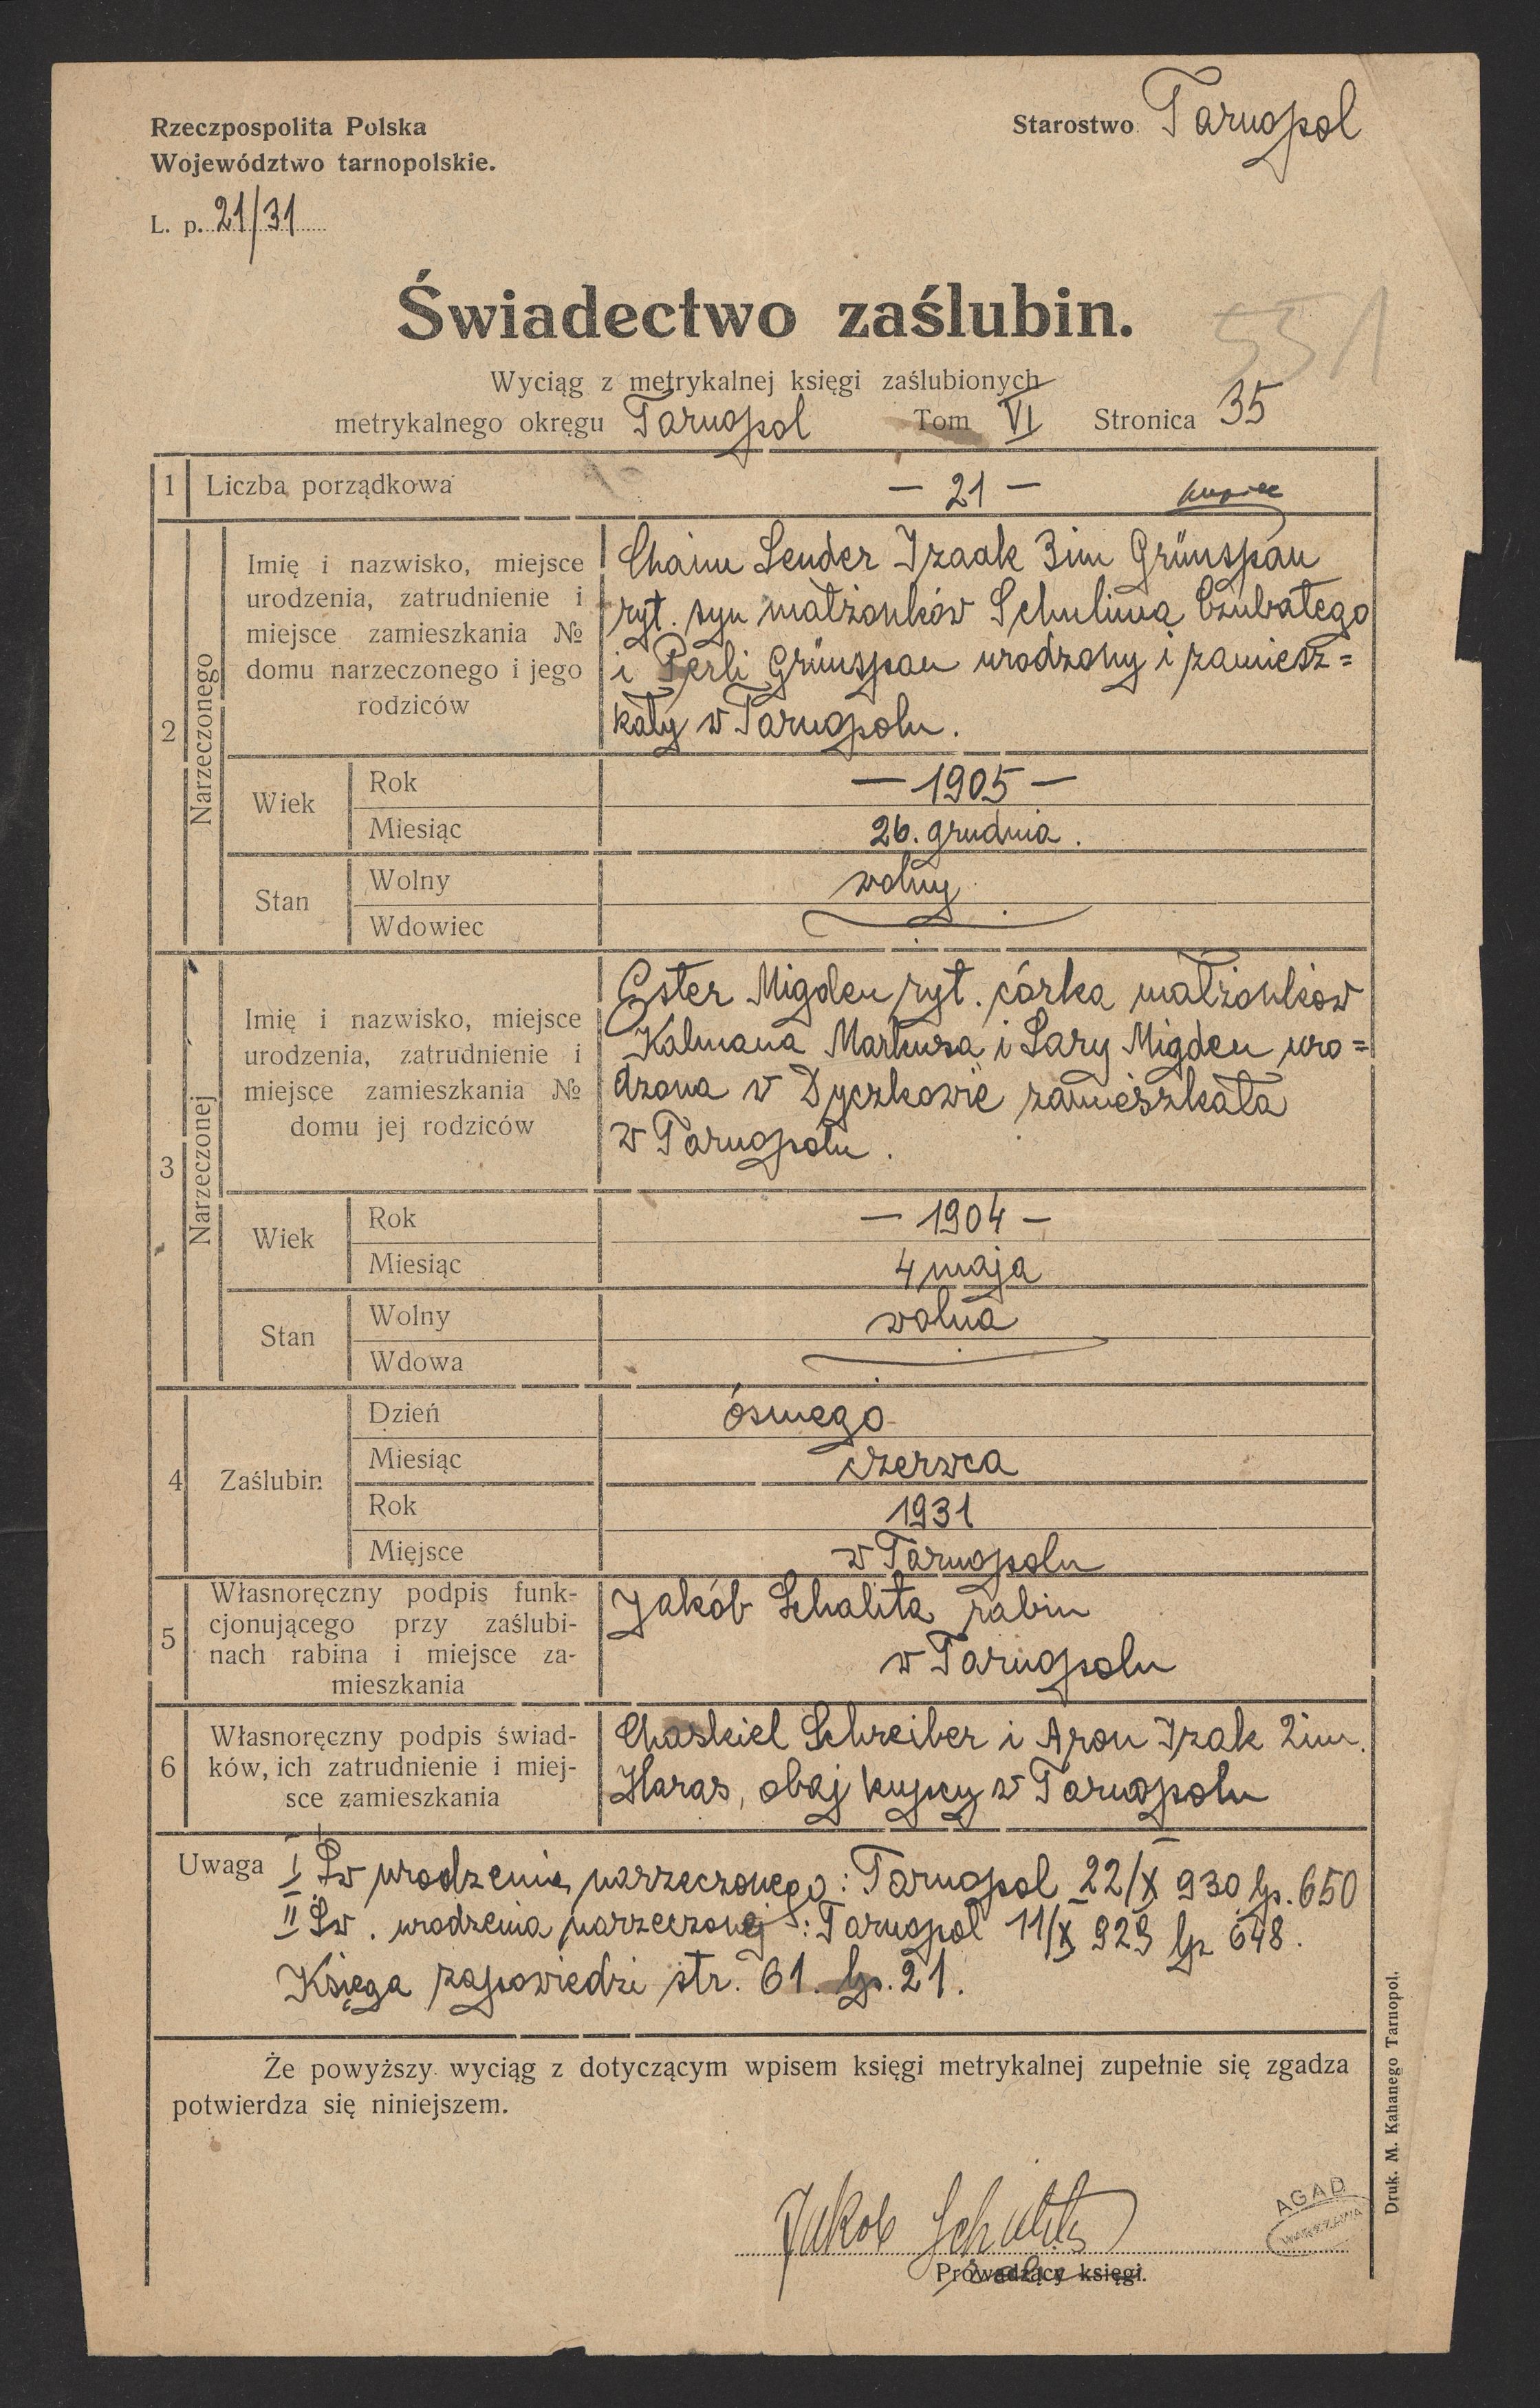 Rzeczpospolita Polska
Województwo tarnopolskie.
Starostwo Tarnopol
L. p. 21/31
Świadectwo zaślubin.
551
Wyciąg z metrykalnej księgi zaślubionych
metrykalnego okręgu Tarnopol Tom VI Stronica 35
1 Liczba porządkowa — 21 — kupiec
2 Narzeczonego
Imię i nazwisko, miejsce
urodzenia, zatrudnienie i
miejsce zamieszkania №
domu narzeczonego i jego
rodziców
Chaim Sender Izaak 3 im Grünspan
ryt. syn małżonków Schulima Czubatego
i Perli Grünspan urodzony i zamiesz=
kały w Tarnopolu.
Wiek
Rok — 1905 —
Miesiąc 26. grudnia.
Stan
Wolny wolny
Wdowiec
3 Narzeczonej
Imię i nazwisko, miejsce
urodzenia, zatrudnienie i
miejsce zamieszkania №
domu jej rodziców
Ester Migden ryt. córka małżonków
Kalmana Markusa i Sary Migden uro=
dzona w Dyczkowie zamieszkała
w Tarnopolu.
Wiek
Rok — 1904 —
Miesiąc 4 maja
Stan
Wolny wolna
Wdowa
4 Zaślubin
Dzień ósmego
Miesiąc czerwca
Rok 1931
Miejsce w Tarnopolu
5
Własnoręczny podpis funk-
cjonującego przy zaślubi-
nach rabina i miejsce za-
mieszkania
Jakób Schalita rabin
w Tarnopolu
6
Własnoręczny podpis świad-
ków, ich zatrudnienie i miej-
sce zamieszkania
Chaskiel Schreiber i Aron Izak 2 im.
Haras, obaj kupcy w Tarnopolu
Uwaga I Św urodzenia narzeczonego: Tarnopol 22/X 930 lp. 650
II Św. urodzenia narzeczonej: Tarnopol 11/X 929 lp 648.
Księga zapowiedzi str. 61. lp. 21.
Że powyższy wyciąg z dotyczącym wpisem księgi metrykalnej zupełnie się zgadza
potwierdza się niniejszem.
Jakob Schalita
Prowadzący księgi.
AGAD
WARSZAWA
Druk. M. Kahanego Tarnopol.